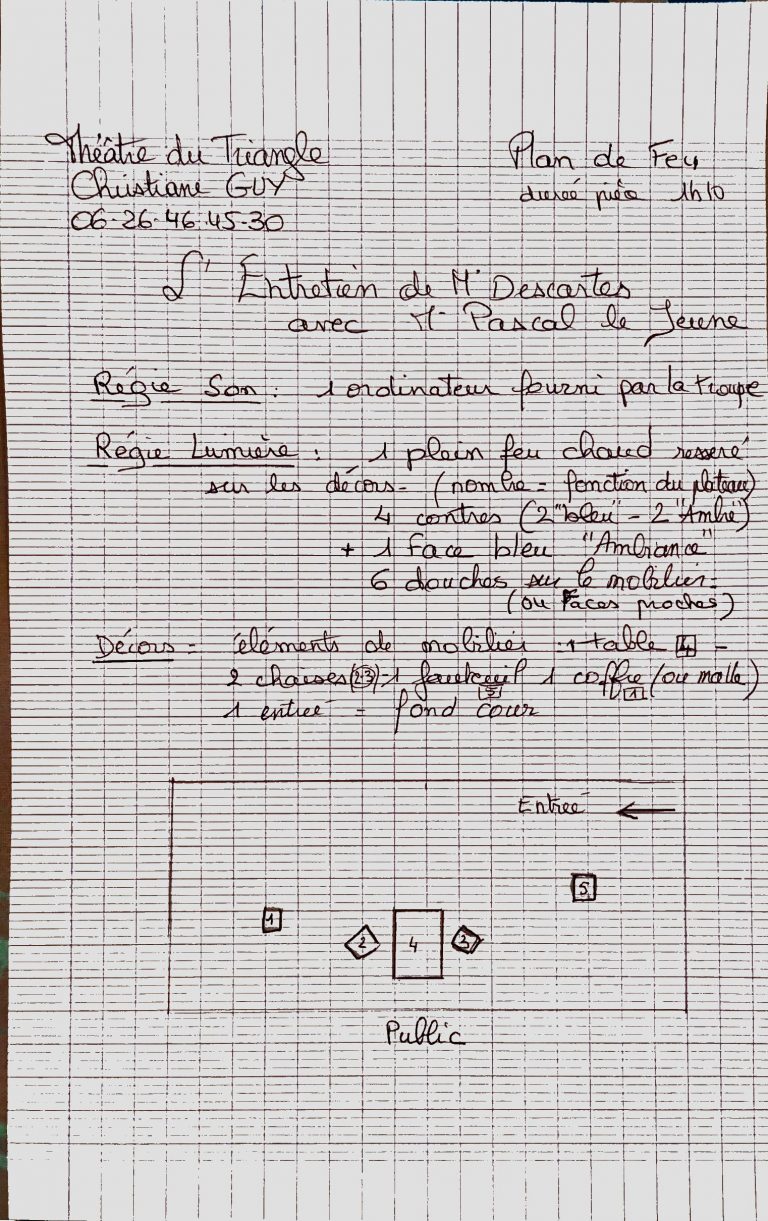 Théâtre du Triangle
Christiane GUY
06-26-46-45-30
Plan de Feu
durée pièce 1h10
L'Entretien de Mr Descartes
avec Mr Pascal le Jeune
Régie Son : 1 ordinateur fourni par la troupe
Régie Lumière : 1 plein feu chaud resseré
sur les décors - (nombre = fonction du plateau)
4 contres (2 "bleu" - 2 "Ambré")
+ 1 Face bleu "Ambiance"
6 douches sur le mobilier.
(ou Faces proches)
Décors = éléments de mobilier : 1 table 4 -
2 chaises (2.3) - 1 fauteuil 5 1 coffre (ou malle) 1
1 entreé = fond cour
Entreé ←
5
1
2 4 3
Public